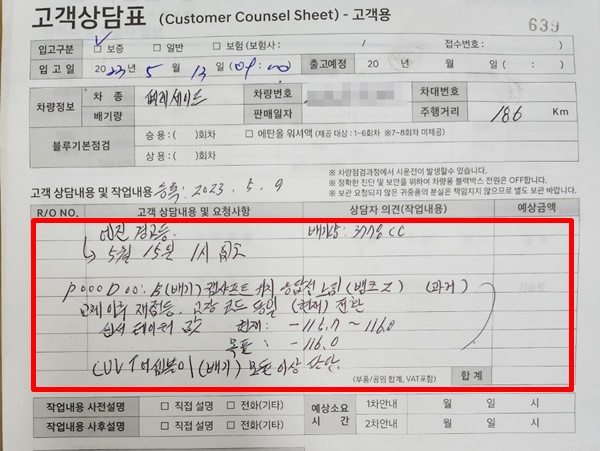 고객상담표 (Customer Counsel Sheet) - 고객용
639
입고구분 ☑ 보증 ☐ 일반 ☐ 보험 (보험사 : / ) 접수번호 : ( )
입 고 일 2023년 5월 13일 ( : ) 출고예정 20 년 월 일 ( : )
차량정보 차 종 펠리세이드 차량번호 차대번호
배기량 판매일자 주행거리 186 Km
블루기본점검 승용 : ( )회차 ☐ 에탄올 워셔액 (제공 대상 : 1-6회차 ※7-8회차 미제공)
상용 : ( )회차
※ 차량점검과정에서 시운전이 발생할수 있습니다.
※ 정확한 진단 및 보안을 위하여 차량용 블랙박스 전원은 OFF합니다.
※ 보관 요청되지 않은 귀중품의 분실은 책임지지 않으므로 별도 보관 바랍니다.
고객 상담내용 및 작업내용 등록: 2023. 5. 9
R/O NO. 고객 상담내용 및 요청사항 상담자 의견(작업내용) 예상금액
엔진 경고등. 배기량: 3778CC
↳ 5월 15일 1시 입고
P000D00: (배기) 캠샤프트 위치 응답성 느림 (뱅크2) (과거)
교체 이후 재점등. 고장 코드 동일 (현재) 전환
센서 데이터 값 현재: -115.7 ~ 116.0
목표: -116.0
CVVT 어셈블이 (배기) 모듈 이상 판단.
(부품/공임 합계, VAT포함) 합 계
작업내용 사전설명 ☐ 직접 설명 ☐ 전화(기타) 예상소요시간 1차안내 월 일 시
작업내용 사후설명 ☐ 직접 설명 ☐ 전화(기타) 2차안내 월 일 시